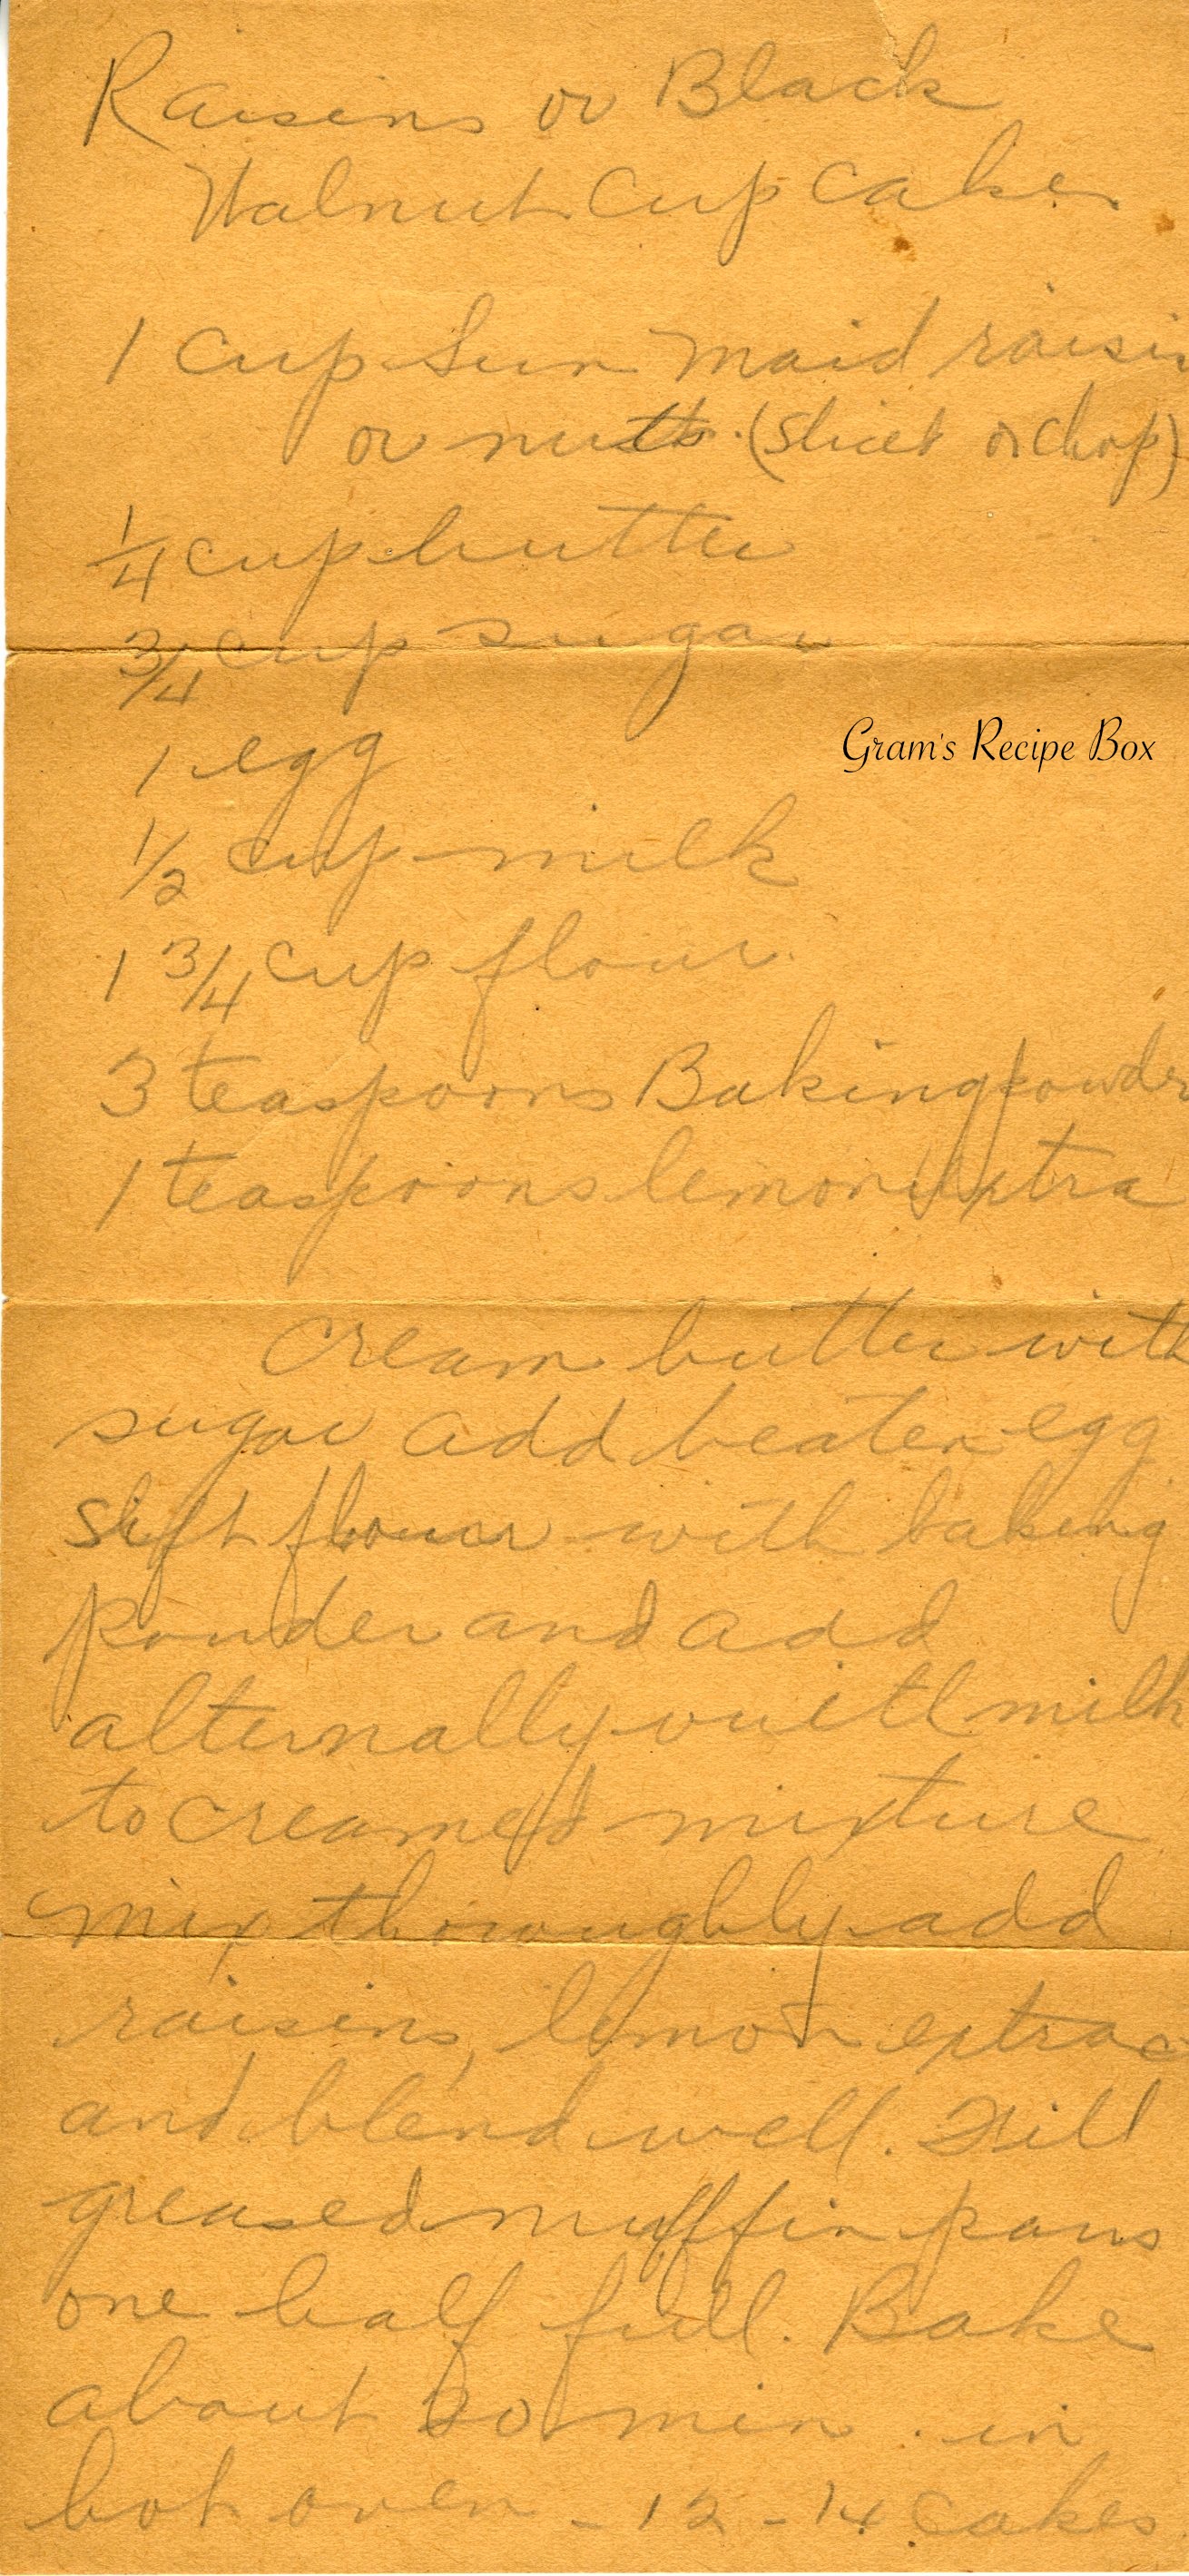 Raisins or Black
Walnut Cup cakes
1 cup Sun Maid raisin
or nuts. (sliced or chop)
1/4 cup butter
3/4 cup sugar
Gram's Recipe Box
1 egg
1/2 cup milk
1 3/4 cup flour.
3 teaspoons Baking powder
1 teaspoons lemon extra
Cream butter with
sugar add beaten egg
Sift flour with baking
powder and add
alternally with milk
to creamed mixture
mix thoroughly add
raisins, lemon extrac
and blend well. Fill
greased muffin pans
one half full. Bake
about 20 min. in
hot oven - 12 - 14 cakes